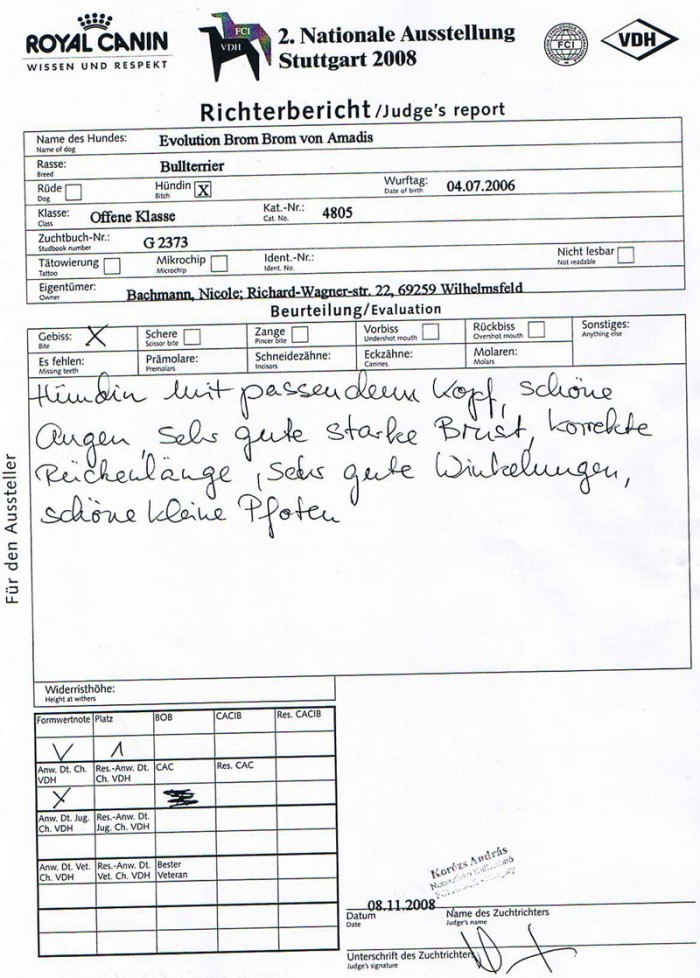 ROYAL CANIN
WISSEN UND RESPEKT
FCI
VDH
2. Nationale Ausstellung
Stuttgart 2008
FCI
VDH
Richterbericht/Judge's report
Name des Hundes: Evolution Brom Brom von Amadis
Name of dog
Rasse: Bullterrier
Breed
Rüde Hündin X Wurftag: 04.07.2006
Dog Bitch Date of birth
Klasse: Offene Klasse Kat.-Nr.: 4805
Class Cat. No.
Zuchtbuch-Nr.: G 2373
Studbook number
Tätowierung Mikrochip Ident.-Nr.: Nicht lesbar
Tattoo Microchip Ident. No. Not readable
Eigentümer: Bachmann, Nicole; Richard-Wagner-str. 22, 69259 Wilhelmsfeld
Owner
Beurteilung/Evaluation
Gebiss: X Schere Zange Vorbiss Rückbiss Sonstiges:
Bite Scissor bite Pincer bite Undershot mouth Overshot mouth Anything else
Es fehlen: Prämolare: Schneidezähne: Eckzähne: Molaren:
Missing teeth Premolars Incisors Canines Molars
Hündin mit passendem Kopf, schöne
Augen, sehr gute starke Brust, korrekte
Rückenlänge, sehr gute Winkelungen,
schöne kleine Pfoten
Für den Aussteller
Widerristhöhe:
Height at withers
Formwertnote Platz BOB CACIB Res. CACIB
V 1
Anw. Dt. Ch. VDH Res.-Anw. Dt. Ch. VDH CAC Res. CAC
X
Anw. Dt. Jug. Ch. VDH Res.-Anw. Dt. Jug. Ch. VDH
Anw. Dt. Vet. Ch. VDH Res.-Anw. Dt. Vet. Ch. VDH Bester Veteran
Korózs András
08.11.2008
Datum Name des Zuchtrichters
Date Judge's name
Unterschrift des Zuchtrichters
Judge's signature